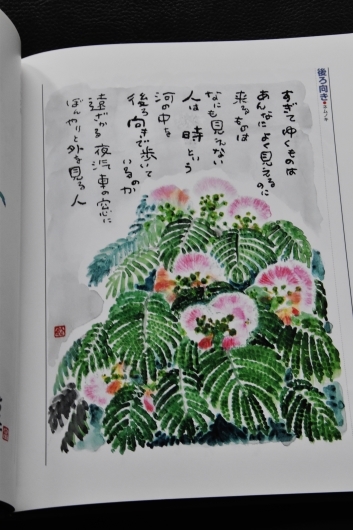 後ろ向き●ネムノキ
すぎてゆくものは
あんなによく見えるのに
来るものは
なにも見えない
人は 時という
河の中を
後ろ向きで歩いて
いるのか
遠ざかる夜汽車の窓に
ぼんやりと外を見る人